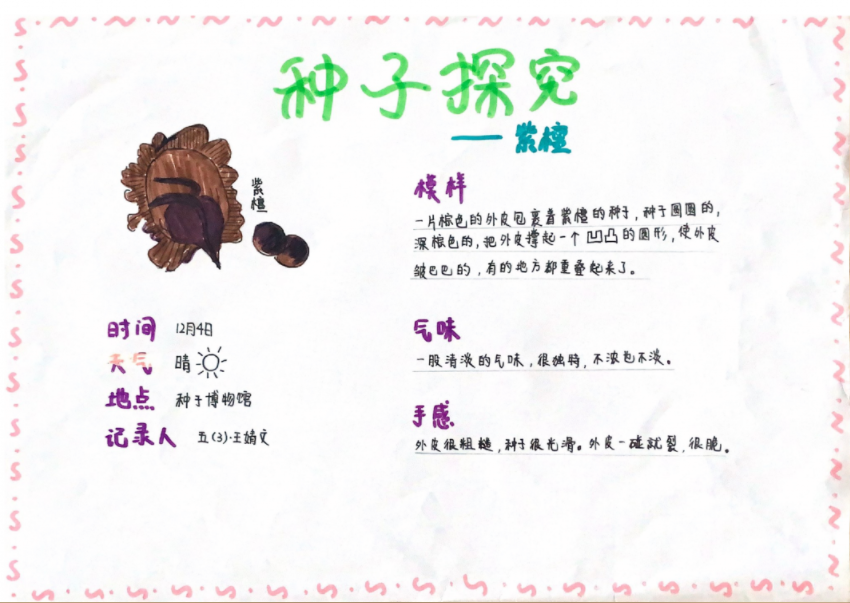 种子探究
——紫檀
紫檀
模样
一片棕色的外皮包裹着紫檀的种子，种子圆圆的，
深棕色的，把外皮撑起一个凹凸的圆形，使外皮
皱巴巴的，有的地方都重叠起来了。
时间 12月4日
天气 晴
地点 种子博物馆
记录人 五(3)·王婧文
气味
一股清淡的气味，很独特，不浓也不淡。
手感
外皮很粗糙，种子很光滑。外皮一碰就裂，很脆。